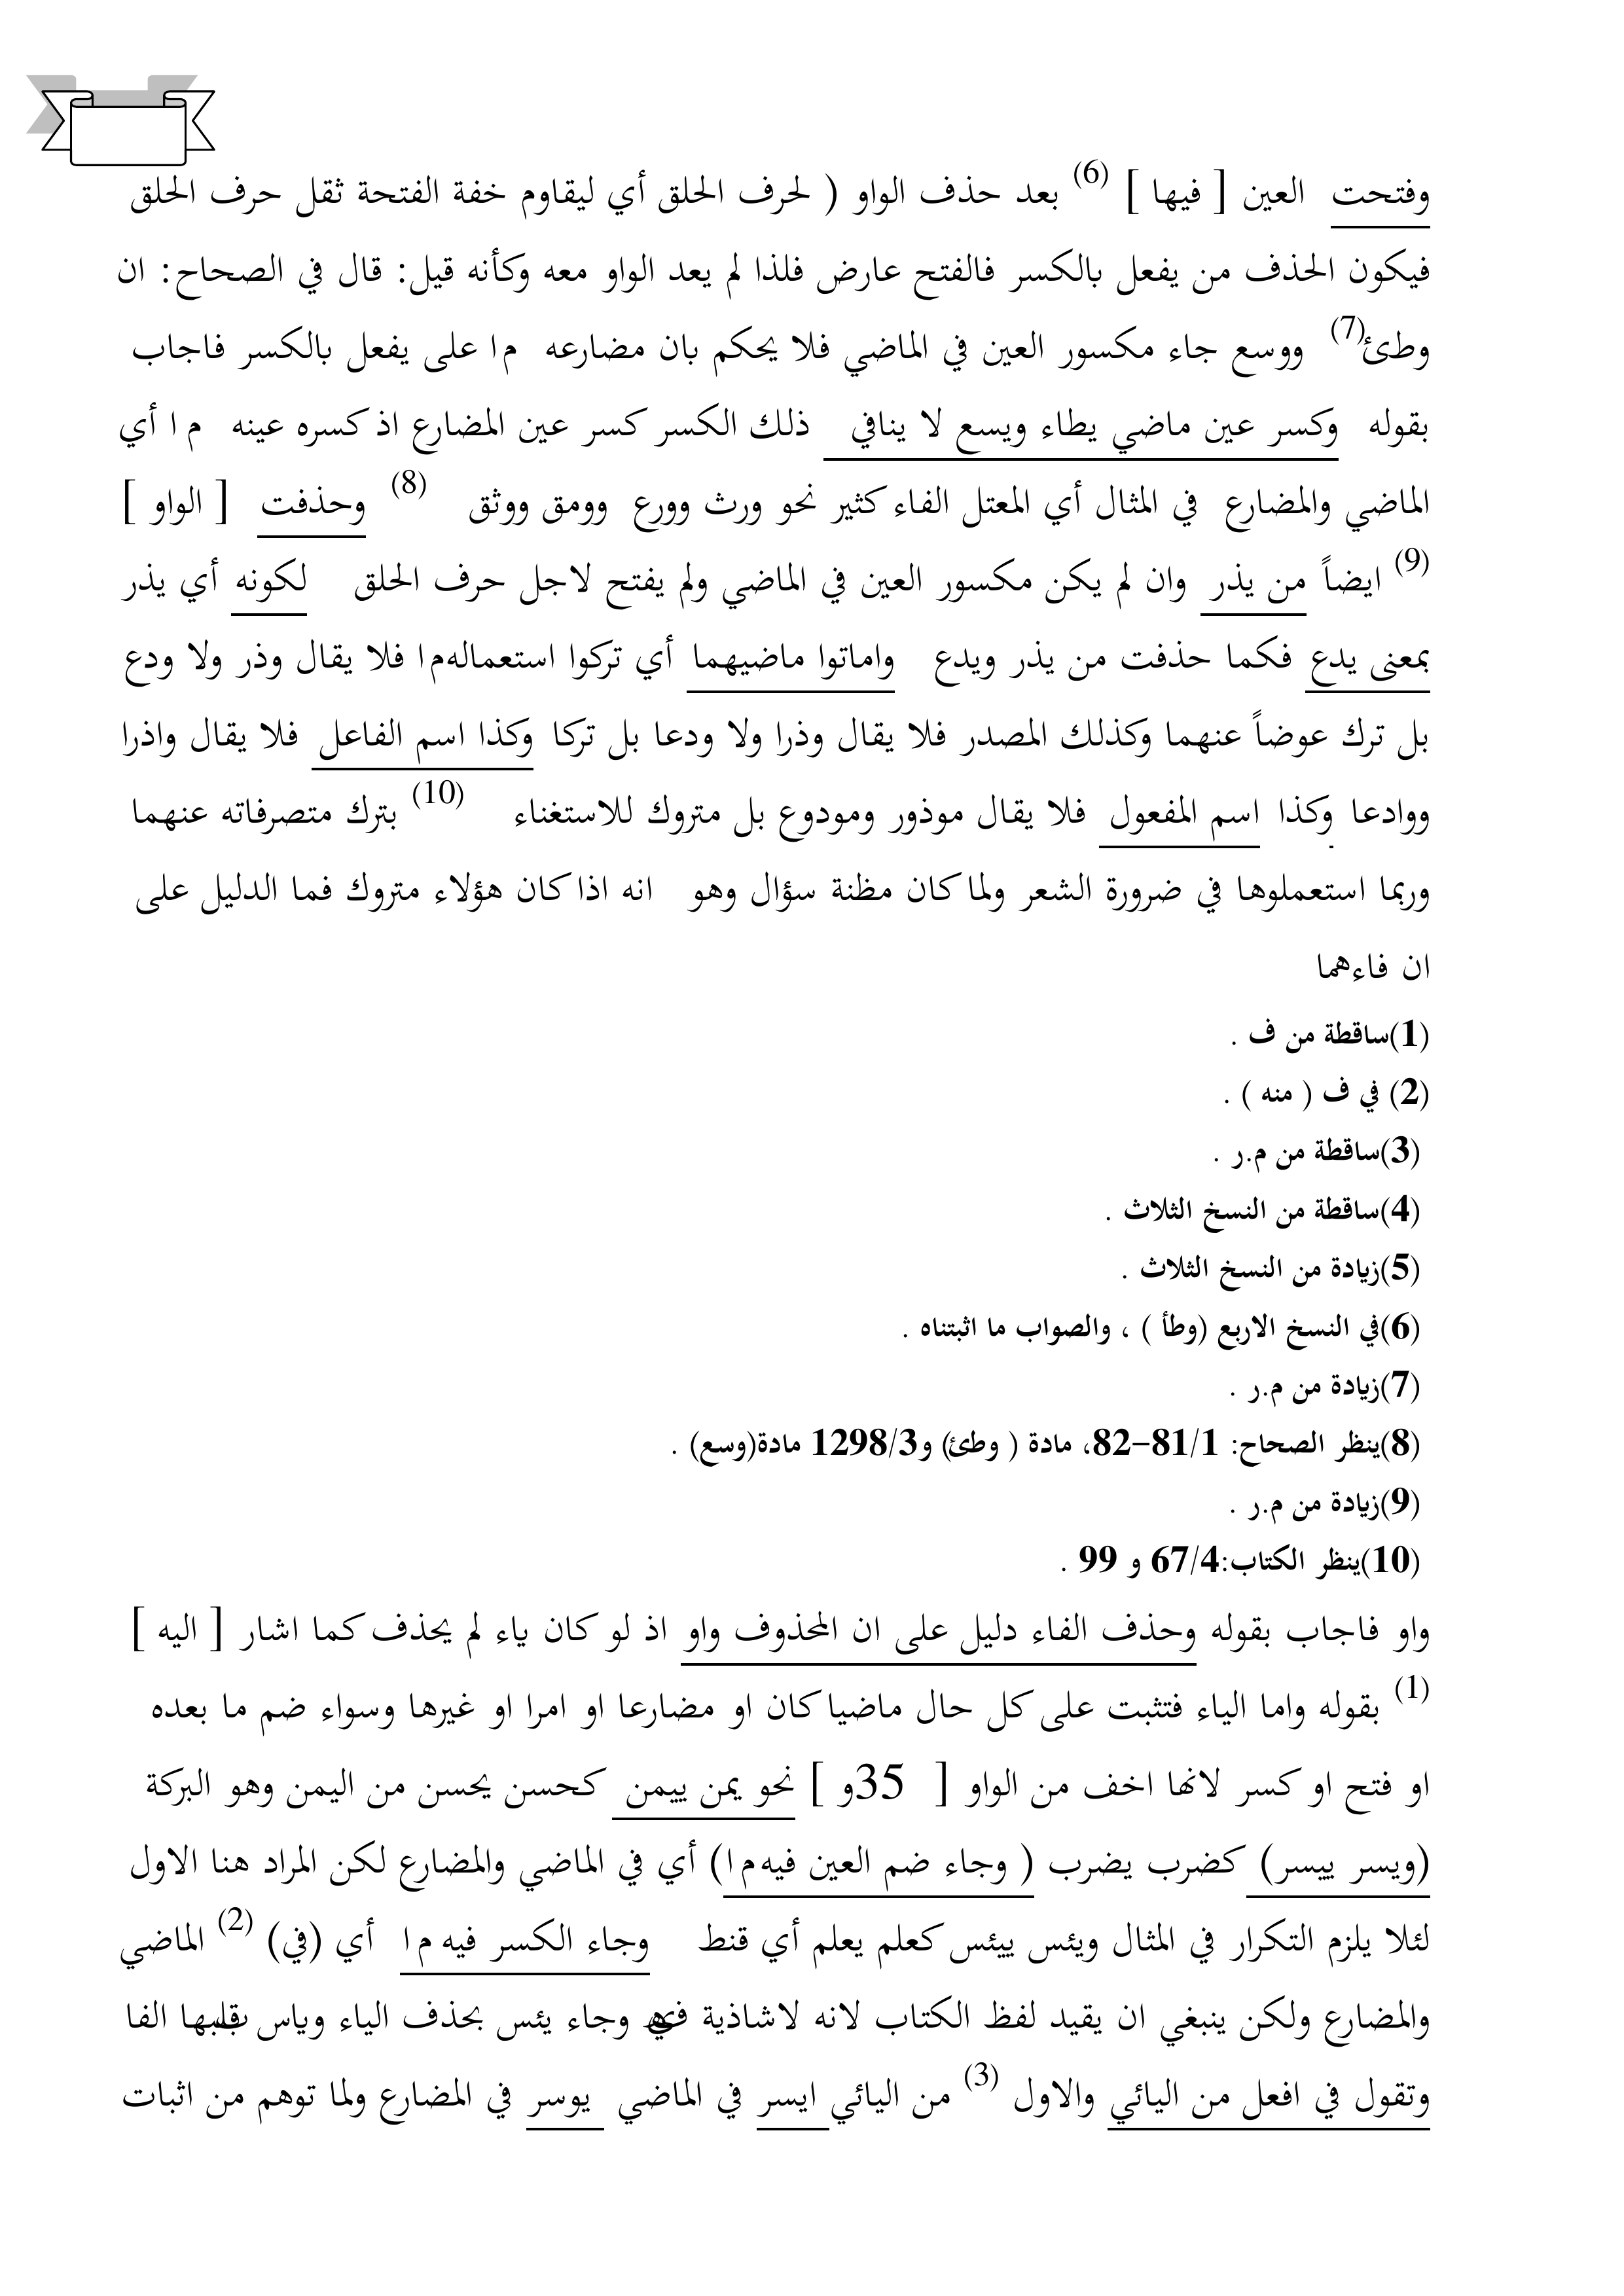 وفتحت العين [ فيها ] (6) بعد حذف الواو ( لحرف الحلق أي ليقاوم خفة الفتحة ثقل حرف الحلق
فيكون الحذف من يفعل بالكسر فالفتح عارض فلذا لم يعد الواو معه وكأنه قيل: قال في الصحاح: ان
وطئ(7) ووسع جاء مكسور العين في الماضي فلا يحكم بان مضارعه ما على يفعل بالكسر فاجاب
بقوله وكسر عين ماضي يطاء ويسع لا ينافي ذلك الكسر كسر عين المضارع اذ كسره عينه ما أي
الماضي والمضارع في المثال أي المعتل الفاء كثير نحو ورث وورع وومق ووثق (8) وحذفت [ الواو ]
(9) ايضاً من يذر وان لم يكن مكسور العين في الماضي ولم يفتح لاجل حرف الحلق لكونه أي يذر
بمعنى يدع فكما حذفت من يذر ويدع واماتوا ماضيهما أي تركوا استعمالهما فلا يقال وذر ولا ودع
بل ترك عوضاً عنهما وكذلك المصدر فلا يقال وذرا ولا ودعا بل تركا وكذا اسم الفاعل فلا يقال واذرا
ووادعا وكذا اسم المفعول فلا يقال موذور ومودوع بل متروك للاستغناء (10) بترك متصرفاته عنهما
وربما استعملوها في ضرورة الشعر ولما كان مظنة سؤال وهو انه اذا كان هؤلاء متروك فما الدليل على
ان فاءهما
(1)ساقطة من ف .
(2) في ف ( منه ) .
(3)ساقطة من م.ر .
(4)ساقطة من النسخ الثلاث .
(5)زيادة من النسخ الثلاث .
(6)في النسخ الاربع (وطأ ) ، والصواب ما اثبتناه .
(7)زيادة من م.ر .
(8)ينظر الصحاح: 81/1–82، مادة ( وطئ) و1298/3 مادة(وسع) .
(9)زيادة من م.ر .
(10)ينظر الكتاب:67/4 و 99 .
واو فاجاب بقوله وحذف الفاء دليل على ان المحذوف واو اذ لو كان ياء لم يحذف كما اشار [ اليه ]
(1) بقوله واما الياء فتثبت على كل حال ماضيا كان او مضارعا او امرا او غيرها وسواء ضم ما بعده
او فتح او كسر لانها اخف من الواو [ 35و ] نحو يمن ييمن كحسن يحسن من اليمن وهو البركة
(ويسر ييسر) كضرب يضرب ( وجاء ضم العين فيهما) أي في الماضي والمضارع لكن المراد هنا الاول
لئلا يلزم التكرار في المثال ويئس ييئس كعلم يعلم أي قنط وجاء الكسر فيه ما أي (في) (2) الماضي
والمضارع ولكن ينبغي ان يقيد لفظ الكتاب لانه لاشاذية فيه وجاء يئس بحذف الياء وياس بقلبها الفا
وتقول في افعل من اليائي والاول (3) من اليائي ايسر في الماضي يوسر في المضارع ولما توهم من اثبات